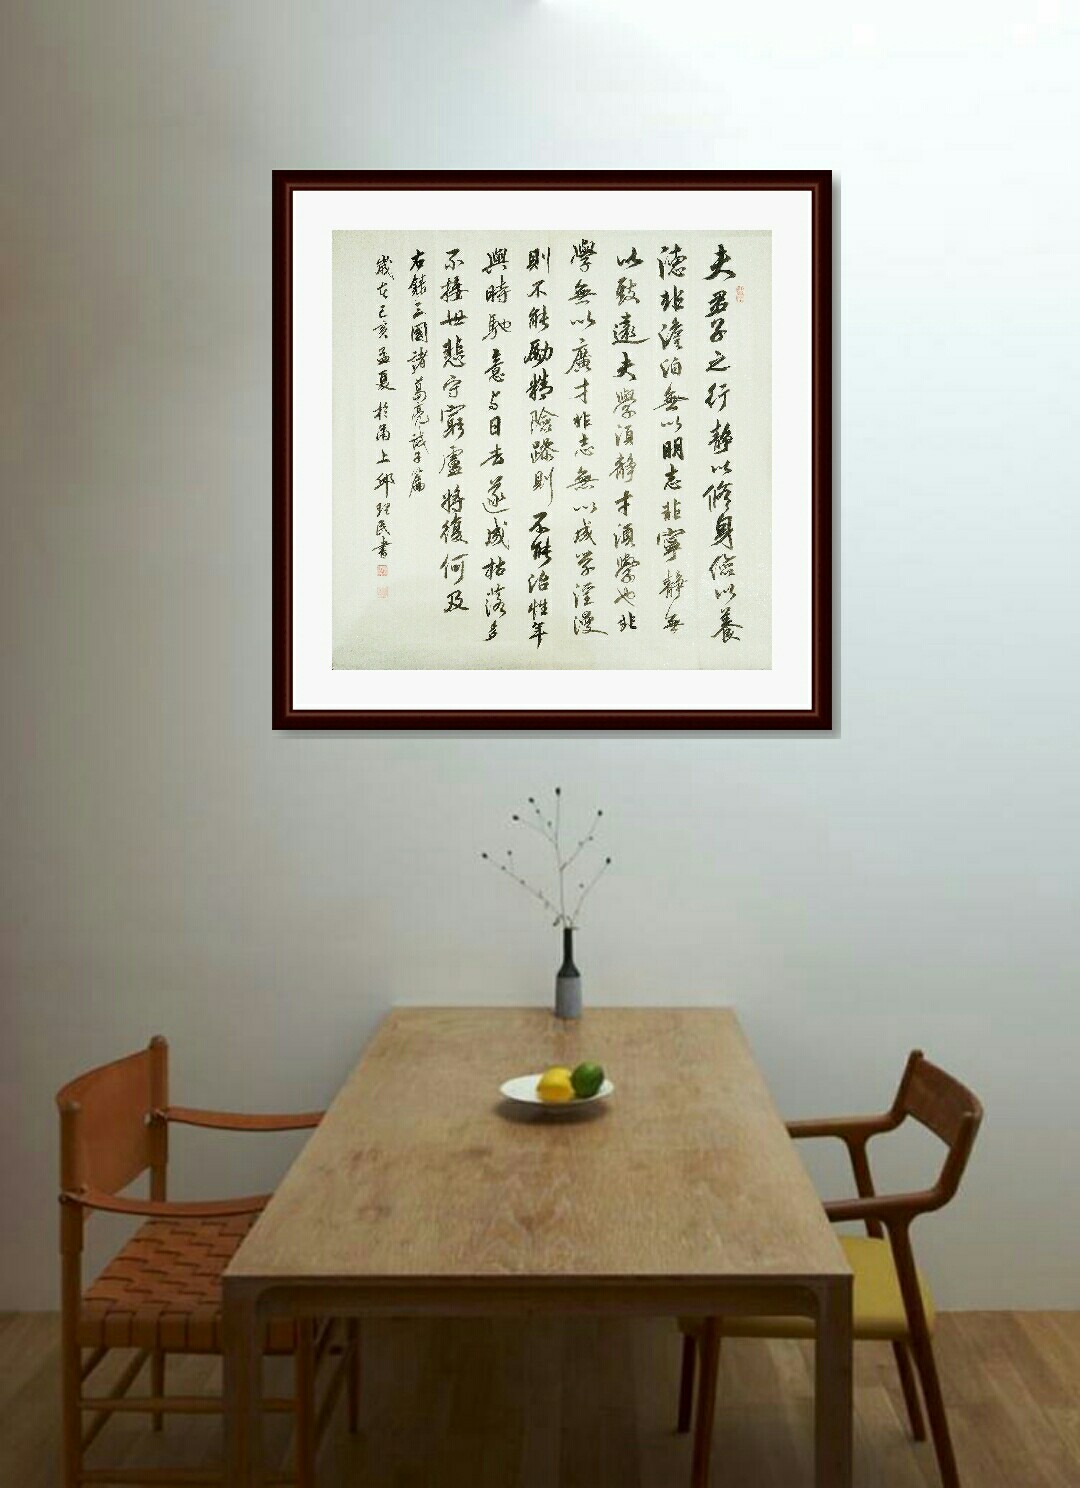 夫君子之行靜以脩身儉以養
德非澹泊無以明志非寧靜無
以致遠夫學須靜才須學也非
學無以廣才非志無以成学淫漫
則不能勵精險躁則不能治性年
與時馳意与日去遂成枯落多
不接世悲守窮廬將復何及
右錄三國諸葛亮誡子篇
歲在己亥孟夏於甬上邱理民書